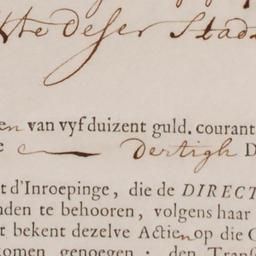 kte deser Stadt
en van vyf duizent guld. courant
e dertigh D
t d'Inroepinge, die de DIRECT
nden te behooren, volgens haar
t bekent dezelve Actien op die C
komen genoegen: den Transf